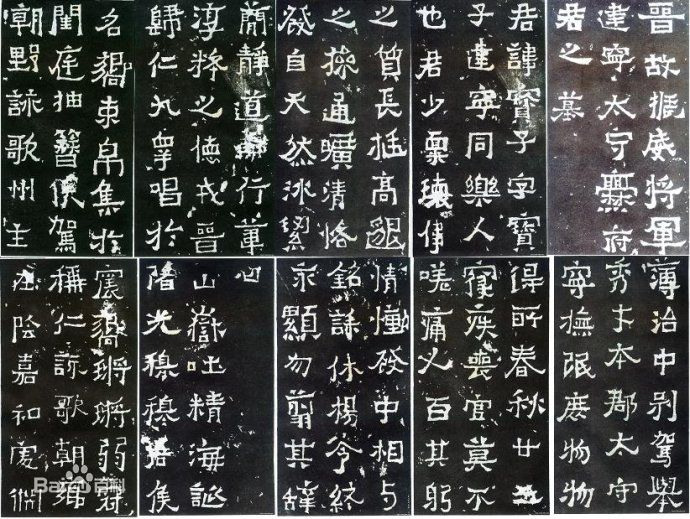 晉故振威將軍
建寧太守爨府
君之墓
君諱寶子字寶
子建寧同樂人
也君少稟瓌偉
之質長挺高邈
之操通曠清恪
發自天然冰絜
簡靜道兼行葦
淳粹之德戎晉
歸仁九皐唱於
名響束帛集於
閨庭抽簪俟駕
朝野詠歌州主
薄治中別駕舉
秀才本郡太守
寧撫氓庶物物
得所春秋廿五
寢疾喪官莫不
嗟痛人百其躬
情慟發中相与
銘誄休揚令終
永顯勿翦其辭
曰
山嶽吐精海誕
陼光穆穆君侯
震響鏘鏘弱冠
稱仁詠歌朝鄉
在陰嘉和處淵
Bai百科